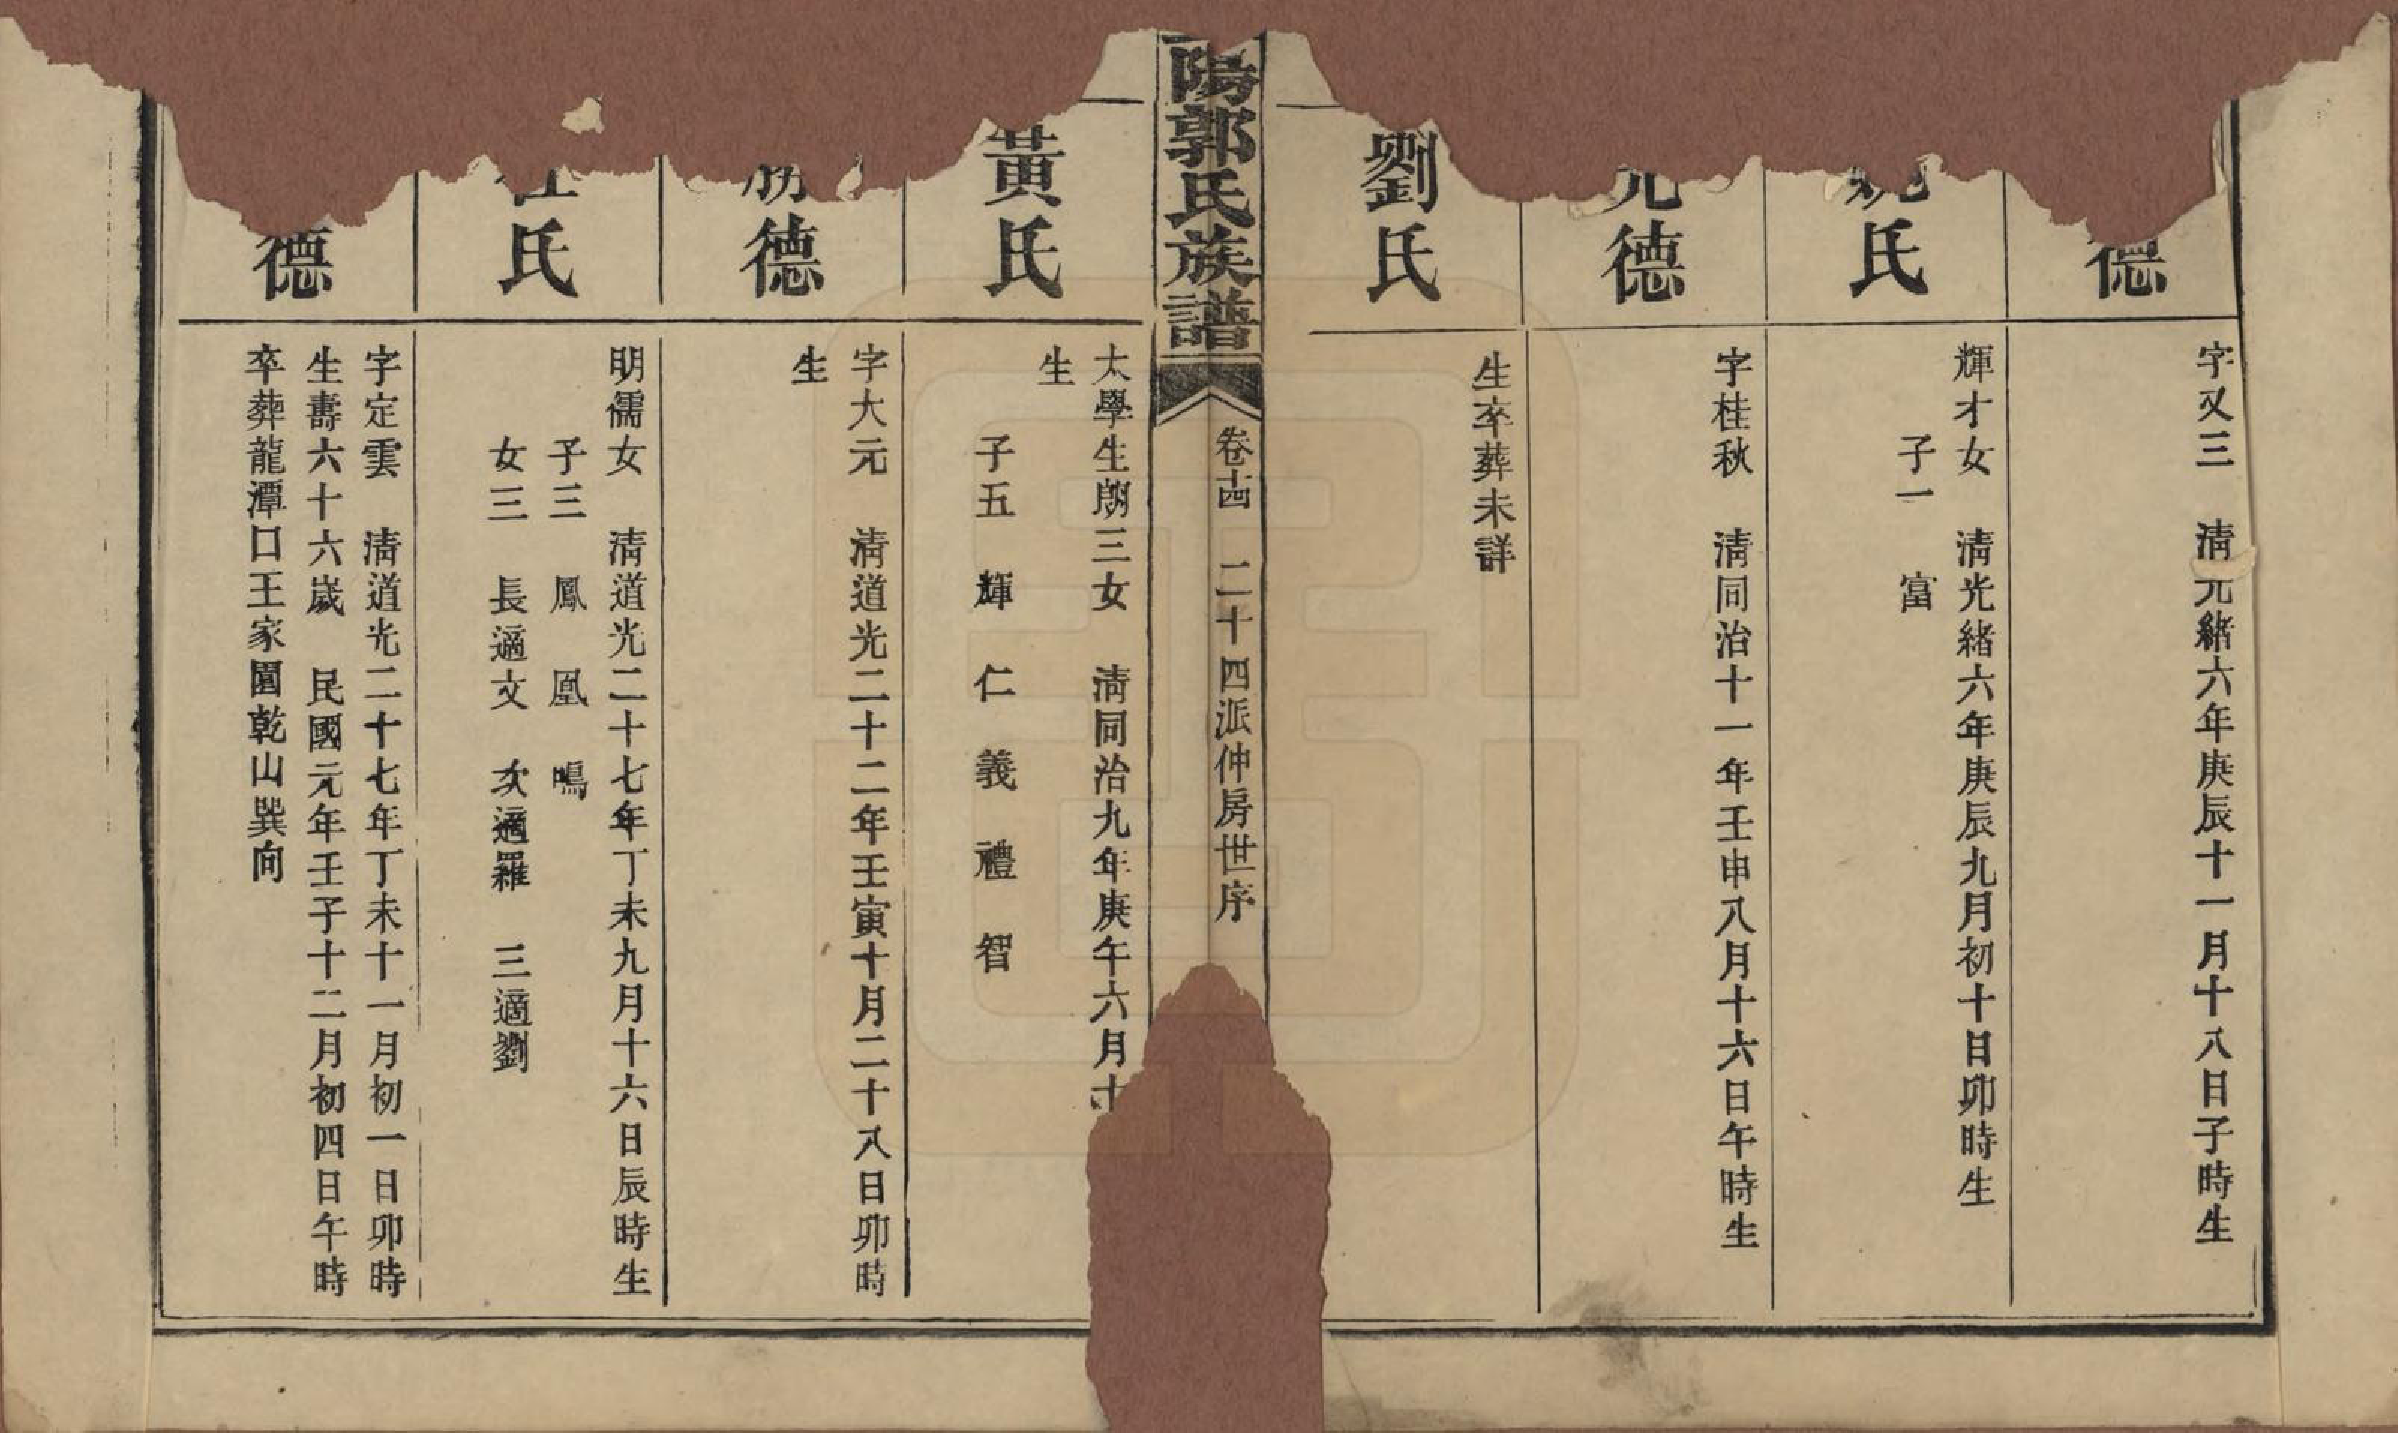 德
字又三　清光緒六年庚辰十一月十八日子時生
氏
輝才女　清光緒六年庚辰九月初十日卯時生
子一　富
德
字桂秋　清同治十一年壬申八月十六日午時生
劉氏
生卒葬未詳
陽郭氏族譜
卷十四　二十四派仲房世序
黃氏
太學生朗三女　清同治九年庚午六月十
生
子五　輝仁義禮智
德
字大元　清道光二十二年壬寅十月二十八日卯時
生
氏
明儒女　清道光二十七年丁未九月十六日辰時生
子三　鳳凰鳴
女三　長適文　次適羅　三適劉
德
字定雲　清道光二十七年丁未十一月初一日卯時
生壽六十六歲　民國元年壬子十二月初四日午時
卒葬龍潭口王家園乾山巽向